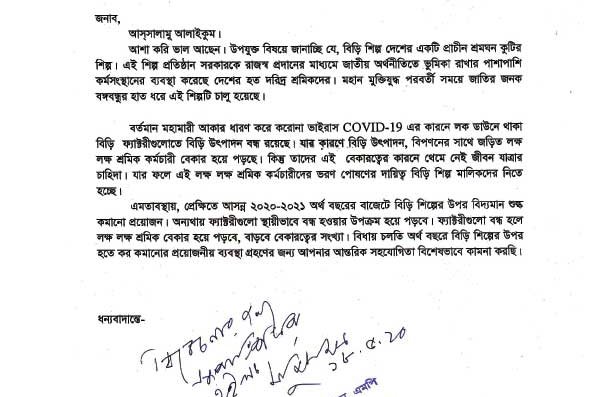 জনাব,
আস্সালামু আলাইকুম।
আশা করি ভাল আছেন। উপযুক্ত বিষয়ে জানাচ্ছি যে, বিড়ি শিল্প দেশের একটি প্রাচীন শ্রমঘন কুটির
শিল্প। এই শিল্প প্রতিষ্ঠান সরকারকে রাজস্ব প্রদানের মাধ্যমে জাতীয় অর্থনীতিতে ভূমিকা রাখার পাশাপাশি
কর্মসংস্থানের ব্যবস্থা করেছে দেশের হত দরিদ্র শ্রমিকদের। মহান মুক্তিযুদ্ধ পরবর্তী সময়ে জাতির জনক
বঙ্গবন্ধুর হাত ধরে এই শিল্পটি চালু হয়েছে।
বর্তমান মহামারী আকার ধারণ করে করোনা ভাইরাস COVID-19 এর কারনে লক ডাউনে থাকা
বিড়ি ফ্যাক্টরীগুলোতে বিড়ি উৎপাদন বন্ধ রয়েছে। যার কারণে বিড়ি উৎপাদন, বিপণনের সাথে জড়িত লক্ষ
লক্ষ শ্রমিক কর্মচারী বেকার হয়ে পড়ছে। কিন্তু তাদের এই বেকারত্বের কারনে থেমে নেই জীবন যাত্রার
চাহিদা। যার ফলে এই লক্ষ লক্ষ শ্রমিক কর্মচারীদের ভরণ পোষণের দায়িত্ব বিড়ি শিল্প মালিকদের নিতে
হচ্ছে।
এমতাবস্থায়, প্রেক্ষিতে আসন্ন ২০২০-২০২১ অর্থ বছরের বাজেটে বিড়ি শিল্পের উপর বিদ্যমান শুল্ক
কমানো প্রয়োজন। অন্যথায় ফ্যাক্টরীগুলো স্থায়ীভাবে বন্ধ হওয়ার উপক্রম হয়ে পড়বে। ফ্যাক্টরীগুলো বন্ধ হলে
লক্ষ লক্ষ শ্রমিক বেকার হয়ে পড়বে, বাড়বে বেকারত্বের সংখ্যা। বিধায় চলতি অর্থ বছরে বিড়ি শিল্পের উপর
হতে কর কমানোর প্রয়োজনীয় ব্যবস্থা গ্রহণের জন্য আপনার আন্তরিক সহযোগিতা বিশেষভাবে কামনা করছি।
ধন্যবাদান্তে-
১৮.৫.২০
এমপি